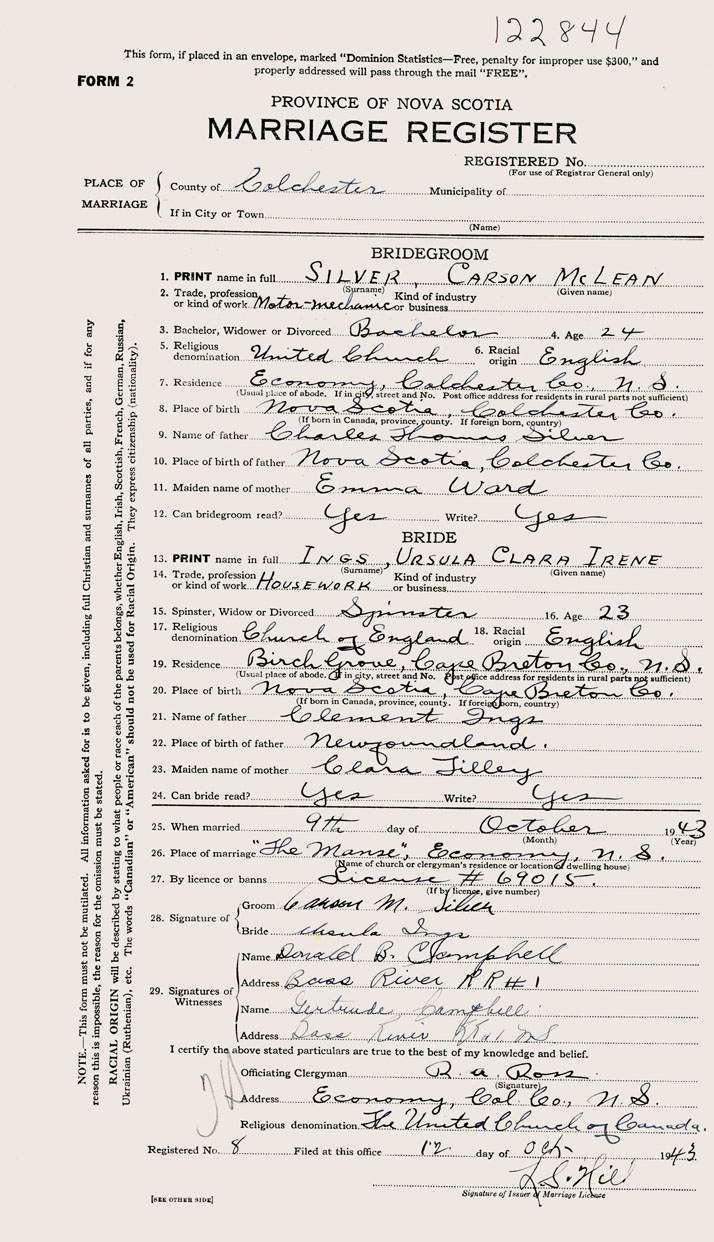 122844
This form, if placed in an envelope, marked "Dominion Statistics—Free, penalty for improper use $300," and
properly addressed will pass through the mail "FREE".
FORM 2
PROVINCE OF NOVA SCOTIA
MARRIAGE REGISTER
REGISTERED No.
(For use of Registrar General only)
PLACE OF MARRIAGE
County of Colchester Municipality of
If in City or Town
(Name)
BRIDEGROOM
1. PRINT name in full SILVER, CARSON McLEAN
(Surname) (Given name)
2. Trade, profession or kind of work Motor-mechanic Kind of industry or business
3. Bachelor, Widower or Divorced Bachelor 4. Age 24
5. Religious denomination United Church 6. Racial origin English
7. Residence Economy, Colchester Co., N. S.
(Usual place of abode. If in city, street and No. Post office address for residents in rural parts not sufficient)
8. Place of birth Nova Scotia, Colchester Co.
(If born in Canada, province, county. If foreign born, country)
9. Name of father Charles Thomas Silver
10. Place of birth of father Nova Scotia, Colchester Co.
11. Maiden name of mother Emma Ward
12. Can bridegroom read? Yes Write? Yes
BRIDE
13. PRINT name in full INGS, URSULA CLARA IRENE
(Surname) (Given name)
14. Trade, profession or kind of work HOUSEWORK Kind of industry or business
15. Spinster, Widow or Divorced Spinster 16. Age 23
17. Religious denomination Church of England 18. Racial origin English
19. Residence Birch Grove, Cape Breton Co., N.S.
(Usual place of abode. If in city, street and No. Post office address for residents in rural parts not sufficient)
20. Place of birth Nova Scotia, Cape Breton Co.
(If born in Canada, province, county. If foreign born, country)
21. Name of father Clement Ings
22. Place of birth of father Newfoundland.
23. Maiden name of mother Clara Tilley
24. Can bride read? Yes Write? Yes
25. When married 9th day of October 1943
(Month) (Year)
26. Place of marriage "The Manse", Economy, N. S.
(Name of church or clergyman's residence or location of dwelling house)
27. By licence or banns License # 69015.
(If by licence, give number)
28. Signature of
Groom Carson M. Silver
Bride Ursula Ings
29. Signatures of Witnesses
Name Donald B. Campbell
Address Bass River RR#1
Name Gertrude Campbell
Address Bass River RR.1 NS
I certify the above stated particulars are true to the best of my knowledge and belief.
Officiating Clergyman R. A. Ross
(Signature)
Address Economy, Col. Co., N. S.
Religious denomination The United Church of Canada.
Registered No. 8 Filed at this office 12 day of Oct 1943
L.S. Hill
Signature of Issuer of Marriage License
[SEE OTHER SIDE]
NOTE.—This form must not be mutilated. All information asked for is to be given, including full Christian and surnames of all parties, and if for any
reason this is impossible, the reason for the omission must be stated.
RACIAL ORIGIN will be described by stating to what people or race each of the parents belongs, whether English, Irish, Scottish, French, German, Russian,
Ukrainian (Ruthenian), etc. The words "Canadian" or "American" should not be used for Racial Origin. They express citizenship (nationality).